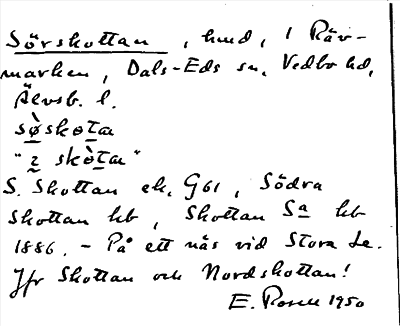 Sörskottan, hmd, i Räv-
marken, Dals-Eds sn. Vedbo hd,
Älvsb. l.
sø̀skota
"2 skòta"
S. Skottan ek. G61, Södra
Skottan kb, Skottan Sa kb
1886. - På ett näs vid Stora Le.
Jfr Skottan och Nordskottan!
E. Rosell 1950